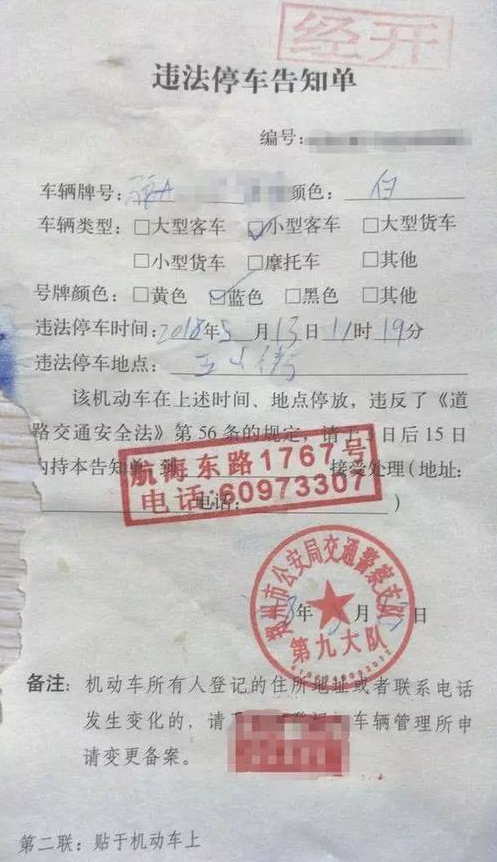 经开
违法停车告知单
编号:
车辆牌号: 豫A 颜色: 白
车辆类型: □大型客车 ☑小型客车 □大型货车
□小型货车 □摩托车 □其他
号牌颜色: □黄色 ☑蓝色 □黑色 □其他
违法停车时间: 2018年5月13日11时19分
违法停车地点:
该机动车在上述时间、地点停放,违反了《道
路交通安全法》第56条的规定,请于3日后15日
内持本告知单,到 接受处理(地址:
航海东路1767号
电话: )
电话:60973307
郑州市公安局交通警察支队
第九大队
8年 月 日
备注: 机动车所有人登记的住所地址或者联系电话
发生变化的,请 车辆管理所申
请变更备案。
第二联: 贴于机动车上